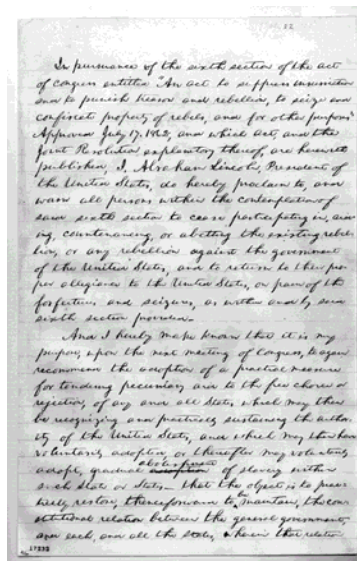 In pursuance of the sixth section of the act
of congress entitled "An act to suppress insurrection
and to punish treason and rebellion, to seize and
confiscate property of rebels, and for other purposes"
Approved July 17, 1862, and which act, and the
Joint Resolution explanatory thereof, are herewith
published, I, Abraham Lincoln, President of
the United States, do hereby proclaim to, and
warn all persons within the contemplation of
said sixth section to cease participating in, aid-
ing, countenancing, or abetting the existing rebel-
lion, or any rebellion against the government
of the United States, and to return to their pro-
per allegiance to the United States, on pain of the
forfeitures and seizures, as within and by said
sixth section provided.
And I hereby make known that it is my
purpose, upon the next meeting of Congress, to again
recommend the adoption of a practical measure
for tendering pecuniary aid to the free choice or
rejection, of any and all States which may then
be recognizing and practically sustaining the author-
ity of the United States, and which may then have
voluntarily adopted, or thereafter may voluntarily
abolishment
adopt, gradual adoption of slavery within
such State or States— that the object is to prac-
tically restore, thenceforward to be maintain, the con-
stitutional relation between the general government,
and each, and all the states, wherein that relation
17233